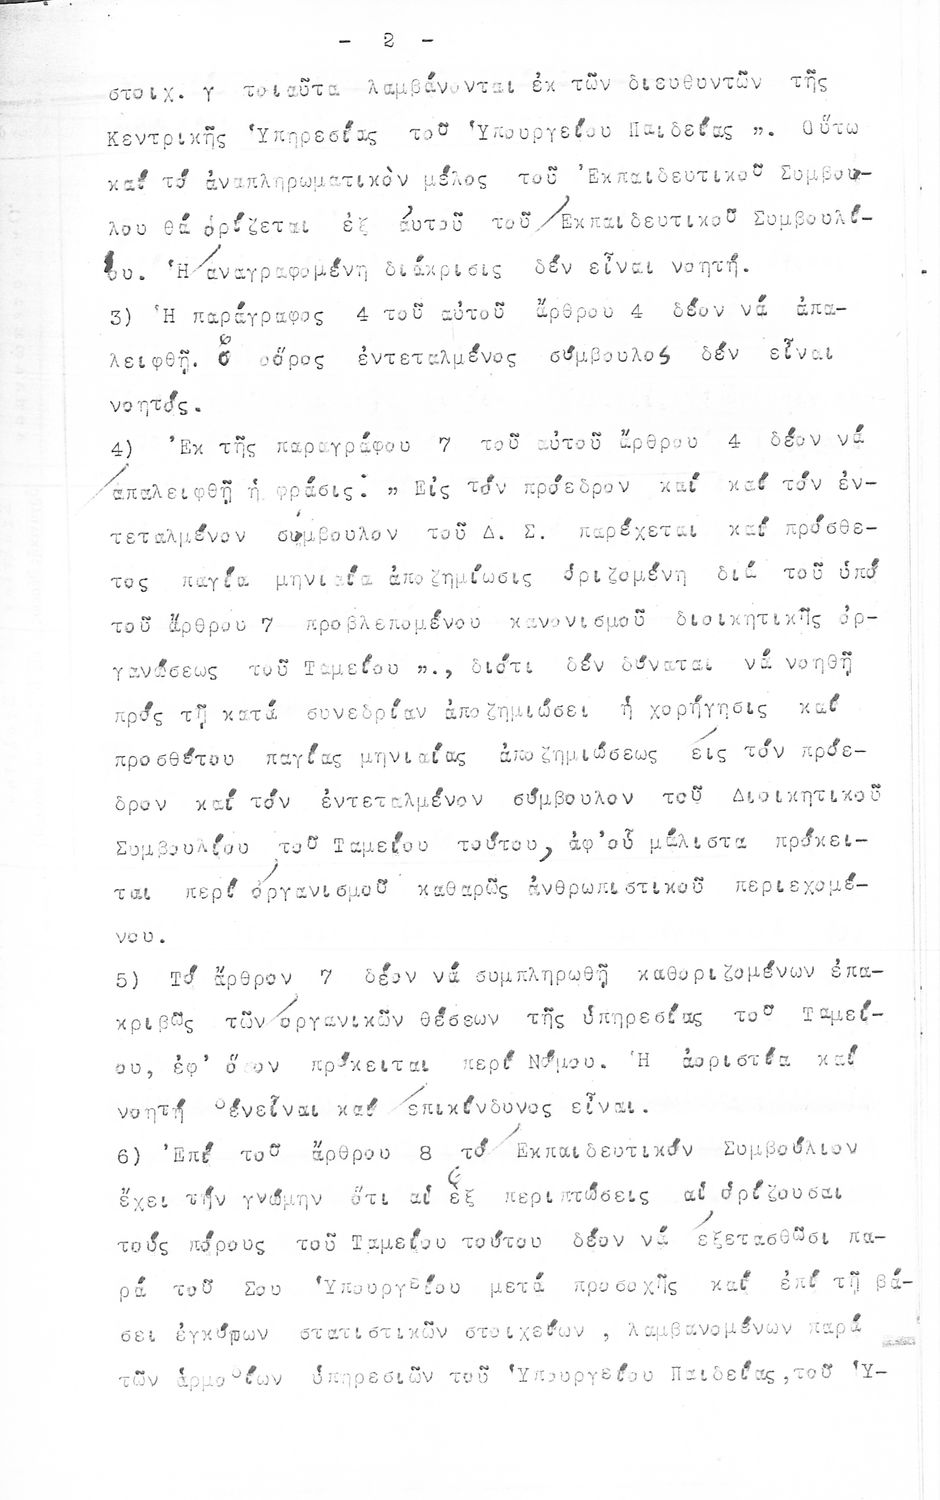 - 2 -
στοιχ. γ τοιαῦτα λαμβάνονται ἐκ τῶν διευθυντῶν τῆς
Κεντρικῆς Ὑπηρεσίας τοῦ Ὑπουργείου Παιδείας ". Οὕτω
καί τό ἀναπληρωματικὸν μέλος τοῦ Ἐκπαιδευτικοῦ Συμβου-
λου θά ὁρίζεται ἐξ αὐτοῦ τοῦ Ἐκπαιδευτικοῦ Συμβουλί-
ου. Ἡ ἀναγραφομένη διάκρισις δέν εἶναι νοητή.
3) Ἡ παράγραφος 4 τοῦ αὐτοῦ ἄρθρου 4 δέον νά ἀπα-
λειφθῇ. Ὁ ὅρος ἐντεταλμένος σύμβουλος δέν εἶναι
νοητός.
4) Ἐκ τῆς παραγράφου 7 τοῦ αὐτοῦ ἄρθρου 4 δέον νά
ἀπαλειφθῇ ἡ φράσις: " Εἰς τόν πρόεδρον καί καί τόν ἐν-
τεταλμένον σύμβουλον τοῦ Δ. Σ. παρέχεται καί πρόσθε-
τος παγία μηνιαία ἀποζημίωσις ὁριζομένη διά τοῦ ὑπό
τοῦ ἄρθρου 7 προβλεπομένου κανονισμοῦ διοικητικῆς ὀρ-
γανώσεως τοῦ Ταμείου "., διότι δέν δύναται νά νοηθῇ
πρός τῇ κατά συνεδρίαν ἀποζημιώσει ἡ χορήγησις καί
προσθέτου παγίας μηνιαίας ἀποζημιώσεως εἰς τόν πρόε-
δρον καί τόν ἐντεταλμένον σύμβουλον τοῦ Διοικητικοῦ
Συμβουλίου τοῦ Ταμείου τούτου, ἀφ'οὗ μάλιστα πρόκει-
ται περί ὀργανισμοῦ καθαρῶς ἀνθρωπιστικοῦ περιεχομέ-
νου.
5) Τό ἄρθρον 7 δέον νά συμπληρωθῇ καθοριζομένων ἐπα-
κριβῶς τῶν ὀργανικῶν θέσεων τῆς ὑπηρεσίας τοῦ Ταμεί-
ου, ἐφ' ὅσον πρόκειται περί Νόμου. Ἡ ἀοριστία καί
νοητή δέν εἶναι καί ἐπικίνδυνος εἶναι.
6) Ἐπί τοῦ ἄρθρου 8 τό Ἐκπαιδευτικόν Συμβούλιον
ἔχει τήν γνώμην ὅτι αἱ ἕξ περιπτώσεις αἱ ὁρίζουσαι
τούς πόρους τοῦ Ταμείου τούτου δέον νά ἐξετασθῶσι πα-
ρά τοῦ Σου Ὑπουργείου μετά προσοχῆς καί ἐπί τῇ βά-
σει ἐγκύρων στατιστικῶν στοιχείων , λαμβανομένων παρά
τῶν ἁρμοδίων ὑπηρεσιῶν τοῦ Ὑπουργείου Παιδείας,τοῦ Ὑ-